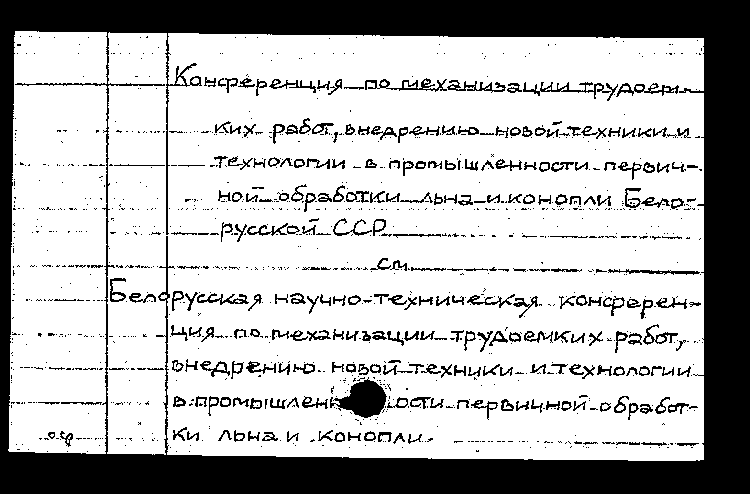 Конференция по механизации трудоем-
ких работ, внедрению новой техники и
технологии в промышленности первич-
ной обработки льна и конопли Бело-
русской ССР
см
Белорусская научно-техническая конферен-
ция по механизации трудоемких работ,
внедрению новой техники и технологии
в промышленности первичной обработ-
ки льна и конопли.